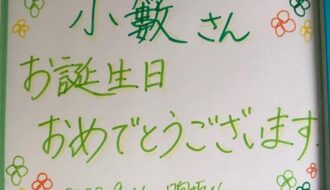 小藪さん
お誕生日
おめでとうございます